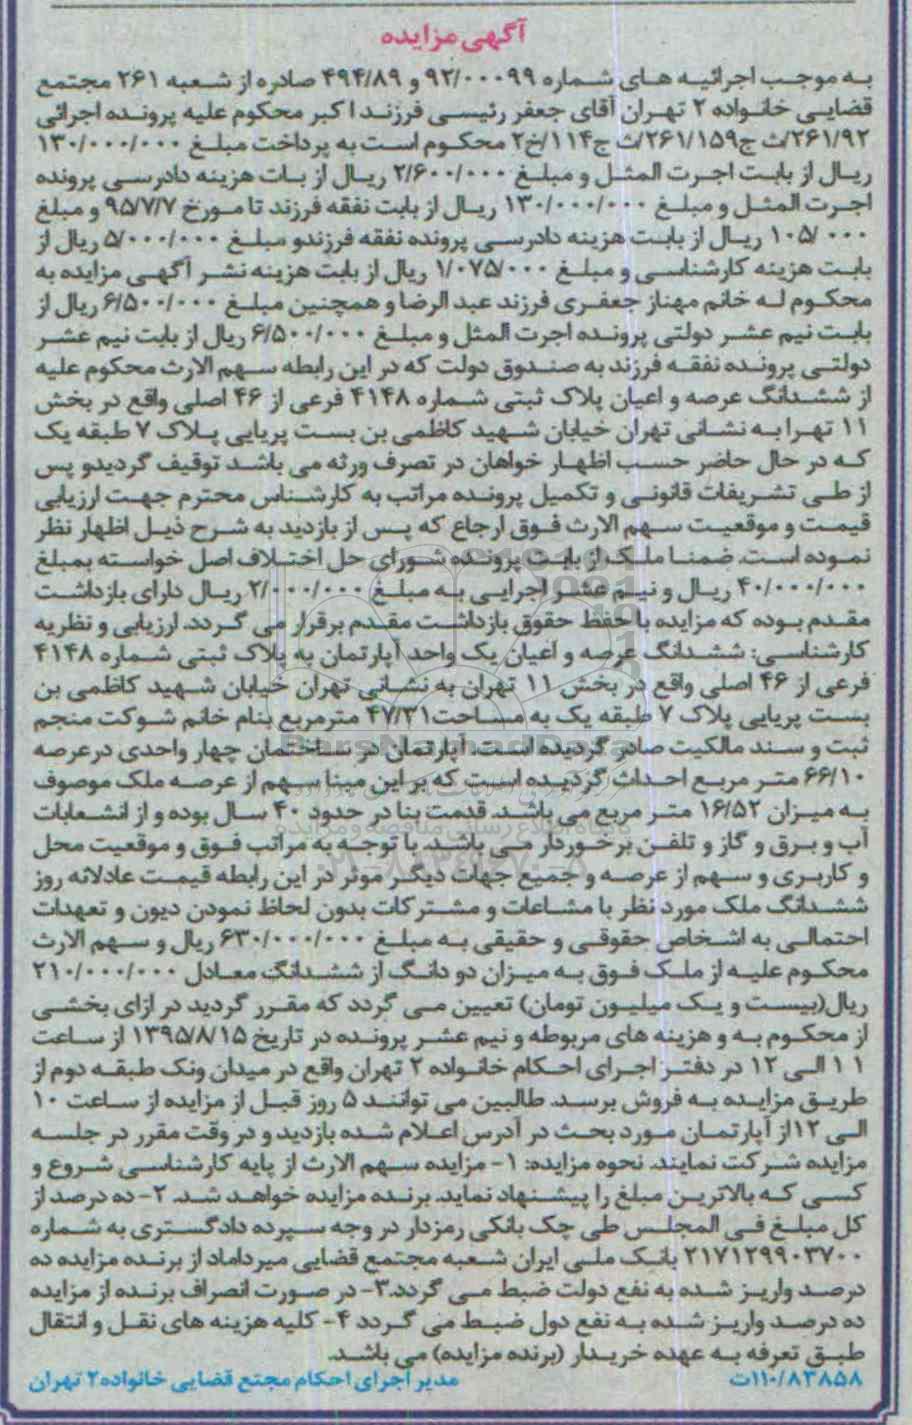 آگهی مزایده
به موجب اجرائیه های شماره ۹۲/۰۰۰۹۹ و ۴۹۴/۸۹ صادره از شعبه ۲۶۱ مجتمع
قضایی خانواده ۲ تهران آقای جعفر رئیسی فرزند اکبر محکوم علیه پرونده اجرائی
۲۶۱/۹۲/ث ج۲۶۱/۱۵۹/ث ج۱۱۴/خ۲ محکوم است به پرداخت مبلغ ۱۳۰/۰۰۰/۰۰۰
ریال از بابت اجرت المثل و مبلغ ۲/۶۰۰/۰۰۰ ریال از بات هزینه دادرسی پرونده
اجرت المثل و مبلغ ۱۳۰/۰۰۰/۰۰۰ ریال از بابت نفقه فرزند تا مورخ ۹۵/۷/۷ و مبلغ
۱۰۵/۰۰۰ ریال از بابت هزینه دادرسی پرونده نفقه فرزندو مبلغ ۵/۰۰۰/۰۰۰ ریال از
بابت هزینه کارشناسی و مبلغ ۱/۰۷۵/۰۰۰ ریال از بابت هزینه نشر آگهی مزایده به
محکوم له خانم مهناز جعفری فرزند عبدالرضا و همچنین مبلغ ۶/۵۰۰/۰۰۰ ریال از
بابت نیم عشر دولتی پرونده اجرت المثل و مبلغ ۶/۵۰۰/۰۰۰ ریال از بابت نیم عشر
دولتی پرونده نفقه فرزند به صندوق دولت که در این رابطه سهم الارث محکوم علیه
از ششدانگ عرصه و اعیان پلاک ثبتی شماره ۴۱۴۸ فرعی از ۴۶ اصلی واقع در بخش
۱۱ تهرا به نشانی تهران خیابان شهید کاظمی بن بست پریایی پلاک ۷ طبقه یک
که در حال حاضر حسب اظهار خواهان در تصرف ورثه می باشد توقیف گردیدو پس
از طی تشریفات قانونی و تکمیل پرونده مراتب به کارشناس محترم جهت ارزیابی
قیمت و موقعیت سهم الارث فوق ارجاع که پس از بازدید به شرح ذیل اظهار نظر
نموده است. ضمنا ملک از بابت پرونده شورای حل اختلاف اصل خواسته بمبلغ
۴۰/۰۰۰/۰۰۰ ریال و نیم عشر اجرایی به مبلغ ۲/۰۰۰/۰۰۰ ریال دارای بازداشت
مقدم بوده که مزایده با حفظ حقوق بازداشت مقدم برقرار می گردد. ارزیابی و نظریه
کارشناسی: ششدانگ عرصه و اعیان یک واحد آپارتمان به پلاک ثبتی شماره ۴۱۴۸
فرعی از ۴۶ اصلی واقع در بخش ۱۱ تهران به نشانی تهران خیابان شهید کاظمی بن
بست پریایی پلاک ۷ طبقه یک به مساحت۴۷/۳۱ مترمربع بنام خانم شوکت منجم
ثبت و سند مالکیت صادر گردیده است. آپارتمان در ساختمان چهار واحدی درعرصه
۶۶/۱۰ متر مربع احداث گردیده است که بر این مبنا سهم از عرصه ملک موصوف
به میزان ۱۶/۵۲ متر مربع می باشد. قدمت بنا در حدود ۴۰ سال بوده و از انشعابات
آب و برق و گاز و تلفن برخوردار می باشد. با توجه به مراتب فوق و موقعیت محل
و کاربری و سهم از عرصه و جمیع جهات دیگر موثر در این رابطه قیمت عادلانه روز
ششدانگ ملک مورد نظر با مشاعات و مشترکات بدون لحاظ نمودن دیون و تعهدات
احتمالی به اشخاص حقوقی و حقیقی به مبلغ ۶۳۰/۰۰۰/۰۰۰ ریال و سهم الارث
محکوم علیه از ملک فوق به میزان دو دانگ از ششدانگ معادل ۲۱۰/۰۰۰/۰۰۰
ریال(بیست و یک میلیون تومان) تعیین می گردد که مقرر گردید در ازای بخشی
از محکوم به و هزینه های مربوطه و نیم عشر پرونده در تاریخ ۱۳۹۵/۸/۱۵ از ساعت
۱۱ الی ۱۲ در دفتر اجرای احکام خانواده ۲ تهران واقع در میدان ونک طبقه دوم از
طریق مزایده به فروش برسد. طالبین می توانند ۵ روز قبل از مزایده از ساعت ۱۰
الی ۱۲از آپارتمان مورد بحث در آدرس اعلام شده بازدید و در وقت مقرر در جلسه
مزایده شرکت نمایند. نحوه مزایده: ۱- مزایده سهم الارث از پایه کارشناسی شروع و
کسی که بالاترین مبلغ را پیشنهاد نماید. برنده مزایده خواهد شد. ۲- ده درصد از
کل مبلغ فی المجلس طی چک بانکی رمزدار در وجه سپرده دادگستری به شماره
۲۱۷۱۲۹۹۰۳۷۰۰ بانک ملی ایران شعبه مجتمع قضایی میرداماد از برنده مزایده ده
درصد واریز شده به نفع دولت ضبط می گردد.۳- در صورت انصراف برنده از مزایده
ده درصد واریز شده به نفع دول ضبط می گردد ۴- کلیه هزینه های نقل و انتقال
طبق تعرفه به عهده خریدار (برنده مزایده) می باشد.
۱۱۰/۸۳۸۵۸ت مدیر اجرای احکام مجتع قضایی خانواده۲ تهران
ParsNamadData
پایگاه اطلاع رسانی مناقصه و مزایده